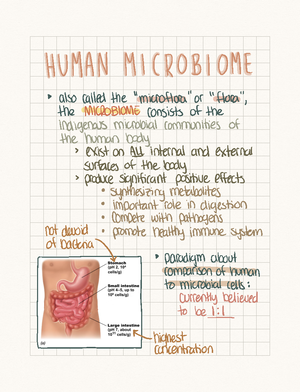 HUMAN MICROBIOME
also called the "microflora" or "flora",
the MICROBIOME consists of the
indigenous microbial communities of
the human body
> exist on ALL internal and external
surfaces of the body
> produce significant positive effects
• synthesizing metabolites
• important role in digestion
• compete with pathogens
• promote healthy immune system
not devoid
of bacteria
Stomach
(pH 2, 10⁴
cells/g)
Small intestine
(pH 4–5, up to
cells/g)
Large intestine
(pH 7, about
cells/g)
(a)
highest
concentration
Paradigm about
comparison of human
to microbial cells:
currently believed
to be 1:1